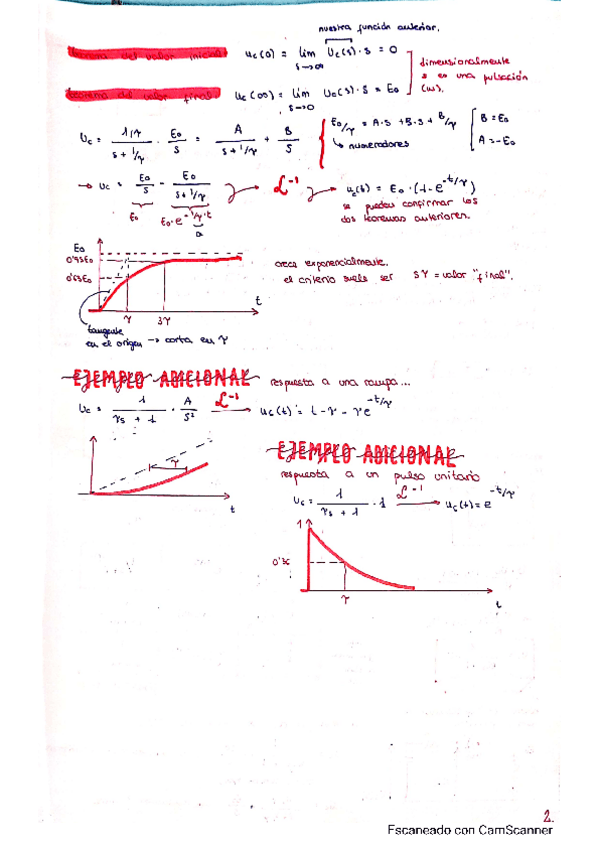 nuestra función anterior.
teorema del valor inicial Uc(0) = lim Uc(s)·s = 0
s→∞
dimensionalmente
s es una pulsación
(ω).
teorema del valor final Uc(∞) = lim Uc(s)·s = E₀
s→0
Uc = 1/τ / (s + 1/τ) · E₀/s = A / (s + 1/τ) + B/s
E₀/τ = A·s + B·s + B/τ
↳ numeradores
B = E₀
A = -E₀
→ Uc = E₀/s - E₀/(s + 1/τ) ℒ⁻¹ uc(t) = E₀·(1-e^-t/τ)
E₀ E₀·e^-1/τ·t
a
se pueden confirmar los
dos teoremas anteriores.
E₀
0'95E₀
0'63E₀
τ 3τ t
tangente
en el origen → corta en τ
crece exponencialmente.
el criterio suele ser 5τ = valor "final".
EJEMPLO ADICIONAL respuesta a una rampa...
Uc = 1/(τs + 1) · A/s² ℒ⁻¹ → uc(t) = t - τ - τe^-t/τ
τ
t
EJEMPLO ADICIONAL
respuesta a un pulso unitario
Uc = 1/(τs + 1) · 1 ℒ⁻¹ → uc(t) = e^-t/τ
1
0'36
τ t
2.
Escaneado con CamScanner